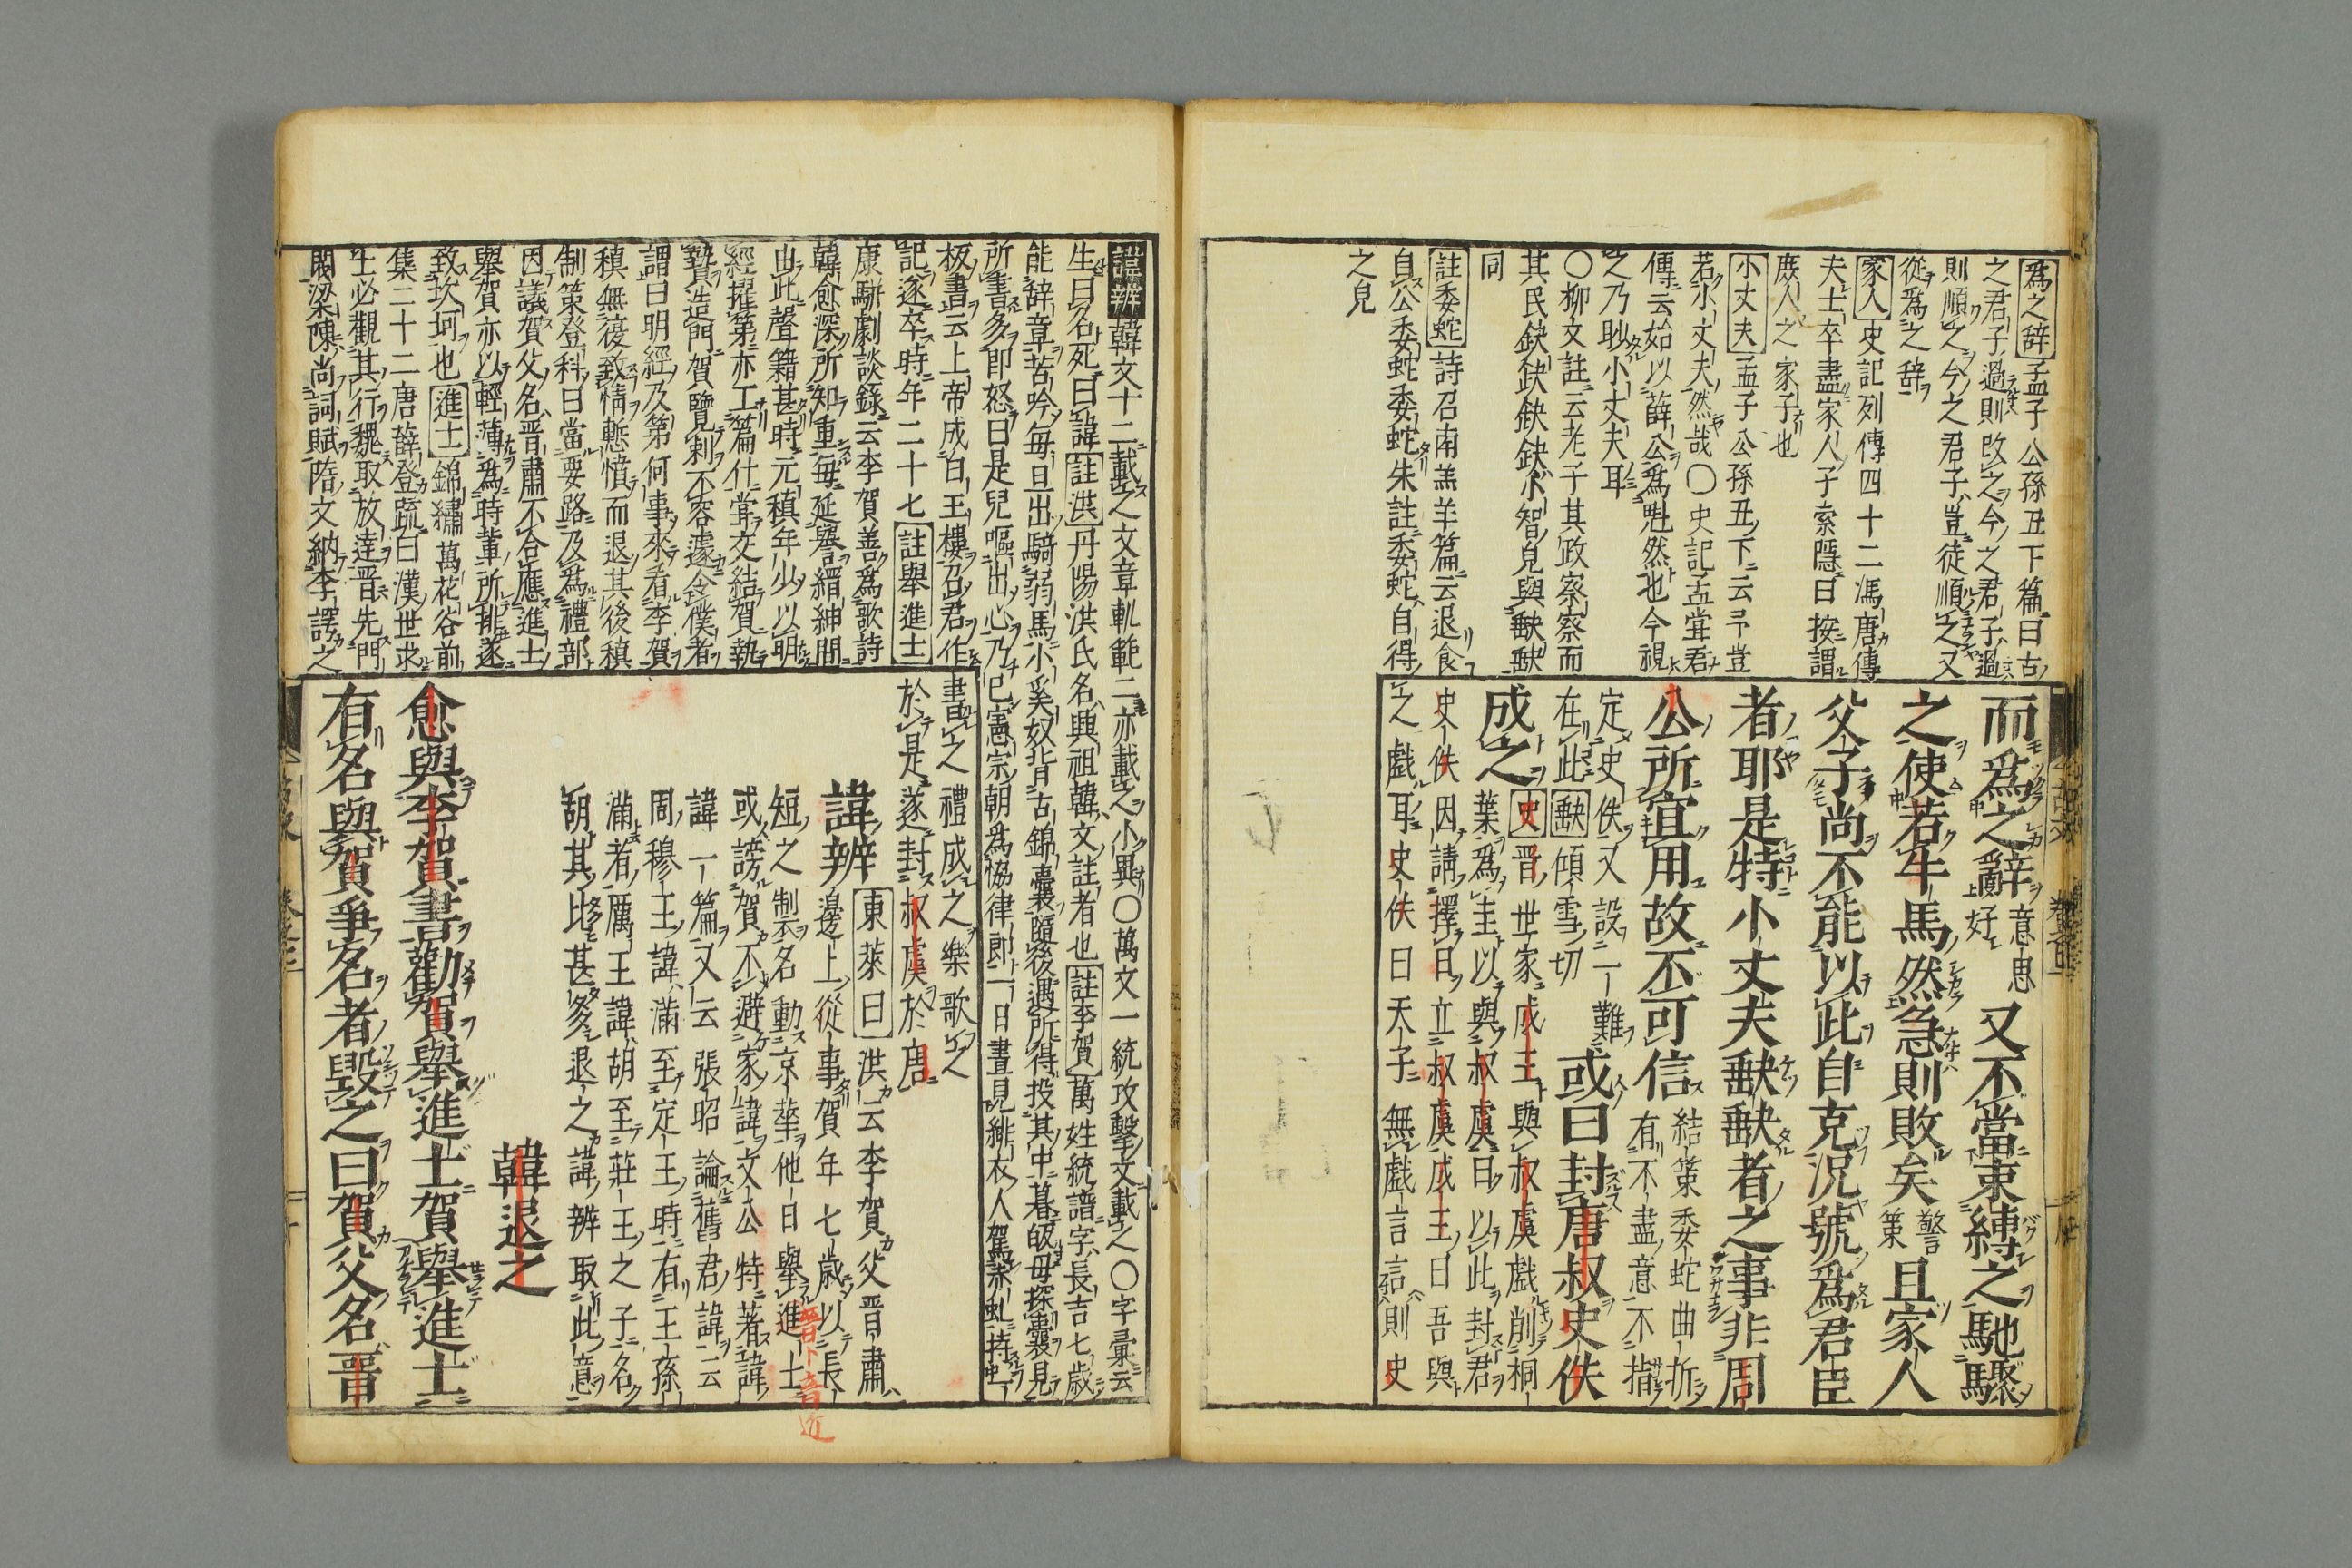 爲之辭孟子公孫丑下篇曰古
之君子過則改之今之君子過
則順之今之君子豈徒順之又
從爲之辞
家人史記列傳四十二馮唐傳
夫士卒盡家人子索隠曰按謂
庶人之家子也
小丈夫孟子公孫丑下云予豈
若小丈夫然哉〇史記孟甞君
傳云始以薛公爲魁然也今視
之乃眇小丈夫耳
〇柳文註云老子其政察察而
其民缺缺缺缺小智皃與𡙇𡙇
同
註委蛇詩召南羔羊篇云退食
自公委蛇委蛇朱註委蛇自得
之皃
而爲之辭意思好又不當束縛之馳驟
之使若牛馬然急則敗矣警策且家人
父子尚不能以此自克況號爲君臣
者耶是特小丈夫𡙇𡙇者之事非周
公所宜用故不可信結策委蛇曲折有不盡意不措
定史佚又設一難
在此𡙇傾雪切或曰封唐叔史佚
成之史晋世家成王與叔虞戲削桐
葉爲圭以與叔虞曰以此封君
史佚因請擇日立叔虞成王曰吾與
之戲耳史佚曰天子無戲言言則史
書之禮成之樂歌之
於是遂封叔虞於唐
諱辨韓文十二載之文章軌範二亦載之小異〇萬文一統攻擊文載之〇字彙云
生曰名死曰諱註洪丹陽洪氏名興祖韓文註者也註李賀萬姓統譜字長吉七歲
能辞章苦吟毎旦出騎弱馬小奚奴背古錦囊隨後遇所得投其中暮皈母探囊見
所書多即怒曰是兒嘔出心乃已憲宗朝爲協律郎一日晝見緋衣人駕赤虬持一
板書云上帝成白玉樓召君作
記遂卒時年二十七註舉進士
康駢劇談錄云李賀善爲歌詩
韓愈深所知重毎延譽縉紳間
由此聲籍甚時元稹年少以明
經擢第亦工篇什甞交結賀執
贄造門賀覽刺不容遽令僕者
謂曰明經及第何事來看李賀
稹無復致情慙憤而退其後稹
制策登科日當要路及爲禮部
因議賀父名晋肅不合應進士
舉賀亦以輕薄爲時軰所排遂
致坎坷也進士錦繡萬花谷前
集二十二唐薛登疏曰漢世求
士必觀其行魏取放達晋先門
閥梁陳尚詞賦隋文納李諤之
諱辨東萊曰洪云李賀父晋肅
邊上從事賀年七歲以長
短之制名動京華他日舉進士
或謗賀不避家諱文公特著諱
諱一篇又云張昭論舊君諱云
周穆王諱滿至定王時有王孫
滿者厲王諱胡至莊王之子名
胡其比甚多退之諱辨取此意
晋卜音近
韓退之
愈與李賀書勸賀舉進士賀舉進士
有名與賀爭名者毀之曰賀父名晋